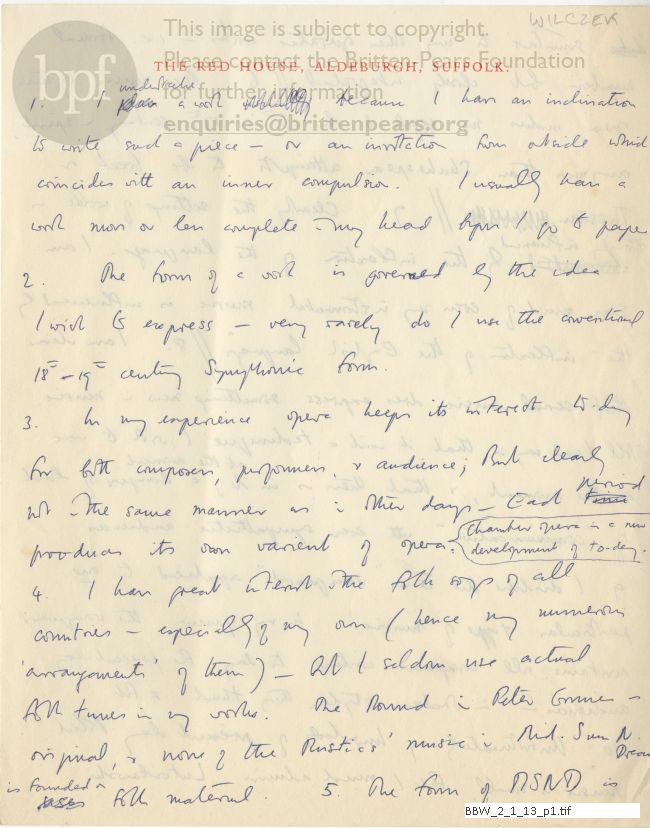 WILCZEK
This image is subject to copyright.
Please contact the Britten Pears Foundation
for further information
enquiries@brittenpears.org
bpf
THE RED HOUSE, ALDEBURGH, SUFFOLK.
1. I undertake a work because I have an inclination
to write such a piece – or an invitation from outside which
coincides with an inner compulsion. I usually have a
work more or less complete in my head before I go to paper
2. The form of a work is governed by the idea
I wish to express – very rarely do I use the conventional
18th – 19th century Symphonic form.
3. In my experience opera keeps its interest to-day
for both composers, performers, & audience; But clearly
not in the same manner as in other days – Each period
produces its own varient of opera. Chamber opera is a new
development of to-day.
4. I have great interest in the folk songs of all
countries – especially of my own (hence my numerous
'arrangements' of them) – but I seldom use actual
folk tunes in my works. The Round in Peter Grimes is
original, & none of the Rustics' music in Mid. Sum N. Dream
is founded on folk material. 5. The form of MSND is
BBW_2_1_13_p1.tif